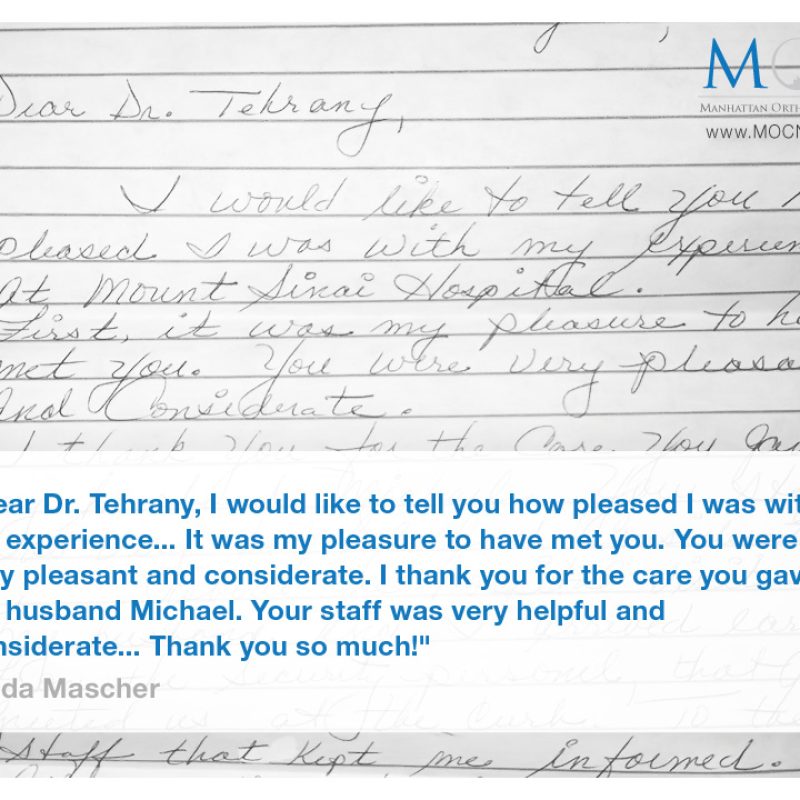 Dear Dr. Tehrany,
MO
MANHATTAN ORTH
www.MOCN
I would like to tell you
pleased I was with my experien
At Mount Sinai Hospital.
First, it was my pleasure to h
met you. You were very pleasa
And Considerate.
I thank you for the Care you ga
ear Dr. Tehrany, I would like to tell you how pleased I was wit
experience... It was my pleasure to have met you. You were
y pleasant and considerate. I thank you for the care you gav
husband Michael. Your staff was very helpful and
nsiderate... Thank you so much!"
da Mascher
security personnel, that
us at the curb. To the
staff that kept me informed.